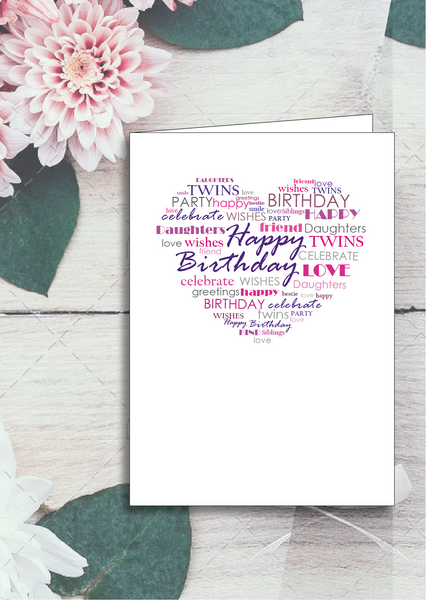 DAUGHTERS friend love
smile TWINS love wishes TWINS
PARTY happy greetings bestie BIRTHDAY
love celebrate WISHES smile PARTY love Siblings HAPPY
Daughters Happy friend Daughters
love wishes friend TWINS
Birthday CELEBRATE
celebrate WISHES LOVE
greetings happy bestie love happy Daughters
BIRTHDAY celebrate
WISHES twins PARTY
Happy Birthday love
KIND Siblings
love